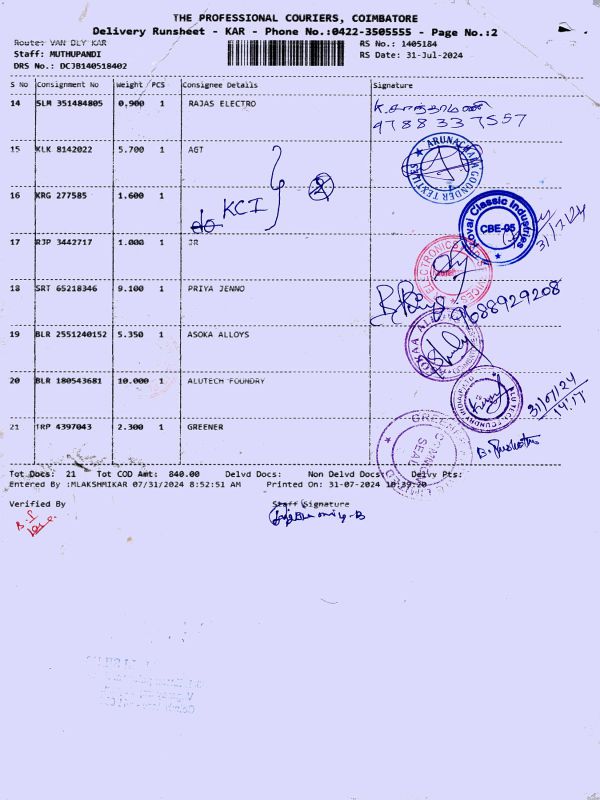 THE PROFESSIONAL COURIERS, COIMBATORE
Delivery Runsheet - KAR - Phone No.:0422-3505555 - Page No.:2
Route: VAN DLY KAR RS No.: 1405184
Staff: MUTHUPANDI RS Date: 31-Jul-2024
DRS No.: DCJB140518402
S No Consignment No Weight PCS Consignee Details Signature
14 SLM 351484805 0.900 1 RAJAS ELECTRO
97883 37557
15 KLK 8142022 5.700 1 AGT
ARUNACHALAM GOUNDER TEXTILES
16 KRG 277585 1.600 1
do KCI
Kovai Classic Industries
CBE-05
31/7/24
17 RJP 3442717 1.000 1 JR
ELECTRONICS
18 SRT 65218346 9.100 1 PRIYA JENNO
9688929208
19 BLR 2551240152 5.350 1 ASOKA ALLOYS
20 BLR 180543681 10.000 1 ALUTECH FOUNDRY
31/07/24
14:17
21 TRP 4397043 2.300 1 GREENER
COMMON SEAL
Tot Docs: 21 Tot COD Amt: 840.00 Delvd Docs: Non Delvd Docs: Delvy Pts:
Entered By :MLAKSHMIKAR 07/31/2024 8:52:51 AM Printed On: 31-07-2024 10:39:20
Verified By Staff Signature